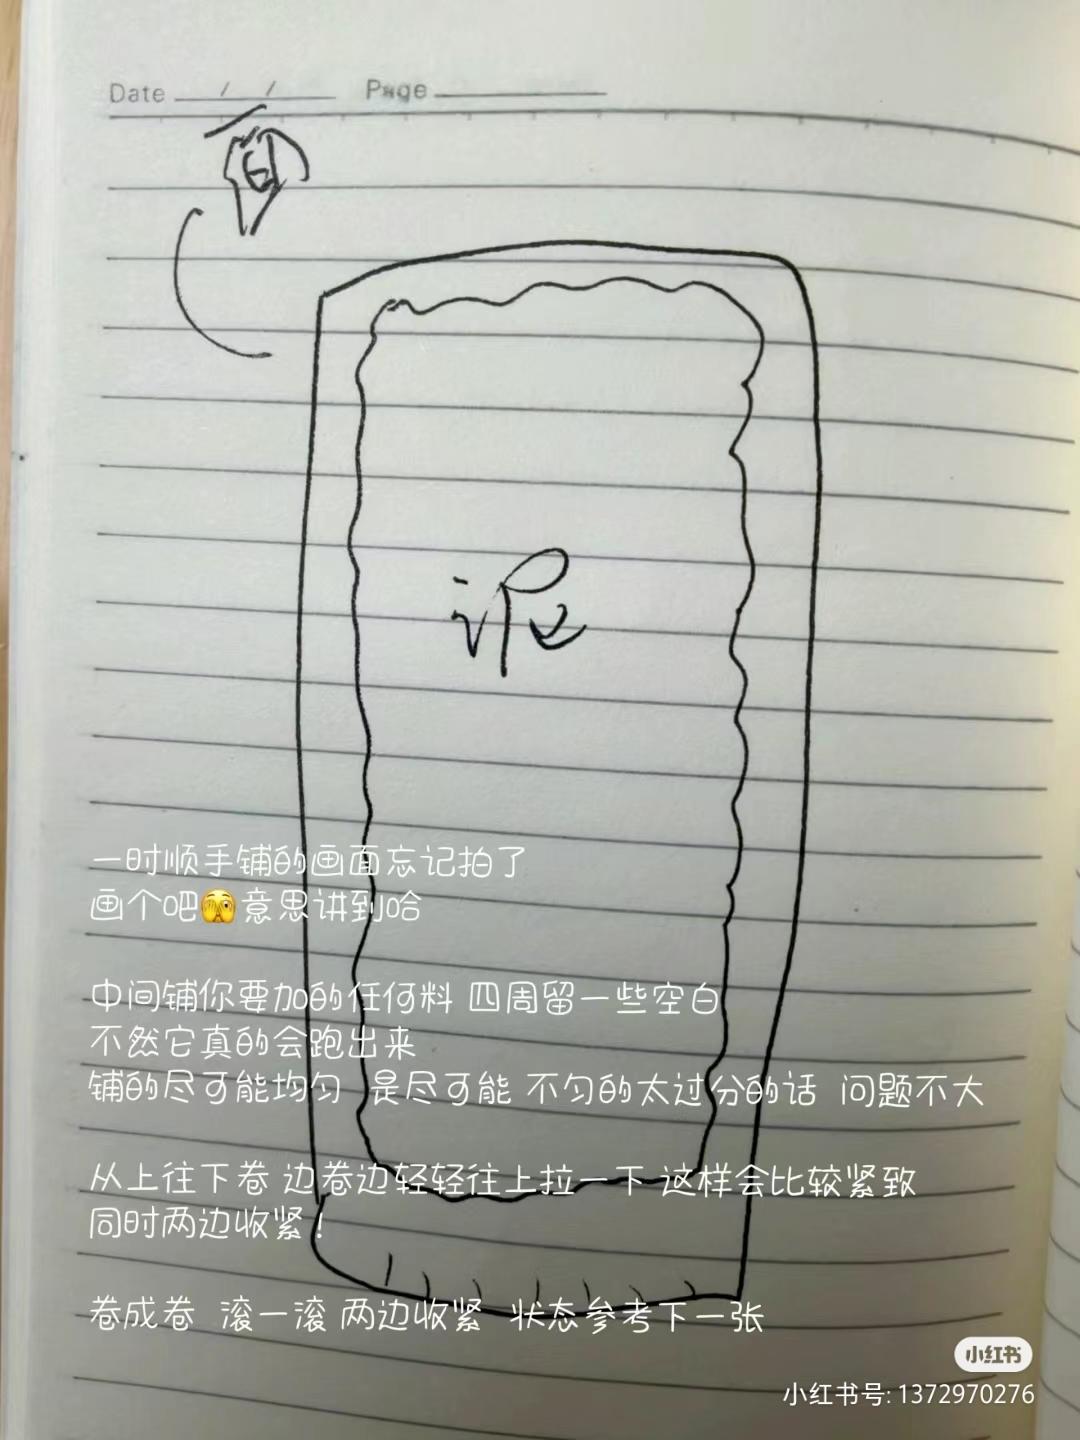 Date / / Page
一时顺手铺的画面忘记拍了
画个吧🫣意思讲到哈
中间铺你要加的任何料 四周留一些空白
不然它真的会跑出来
铺的尽可能均匀 是尽可能 不匀的太过分的话 问题不大
从上往下卷 边卷边轻轻往上拉一下 这样会比较紧致
同时两边收紧!
卷成卷 滚一滚 两边收紧 状态参考下一张
小红书
小红书号: 1372970276